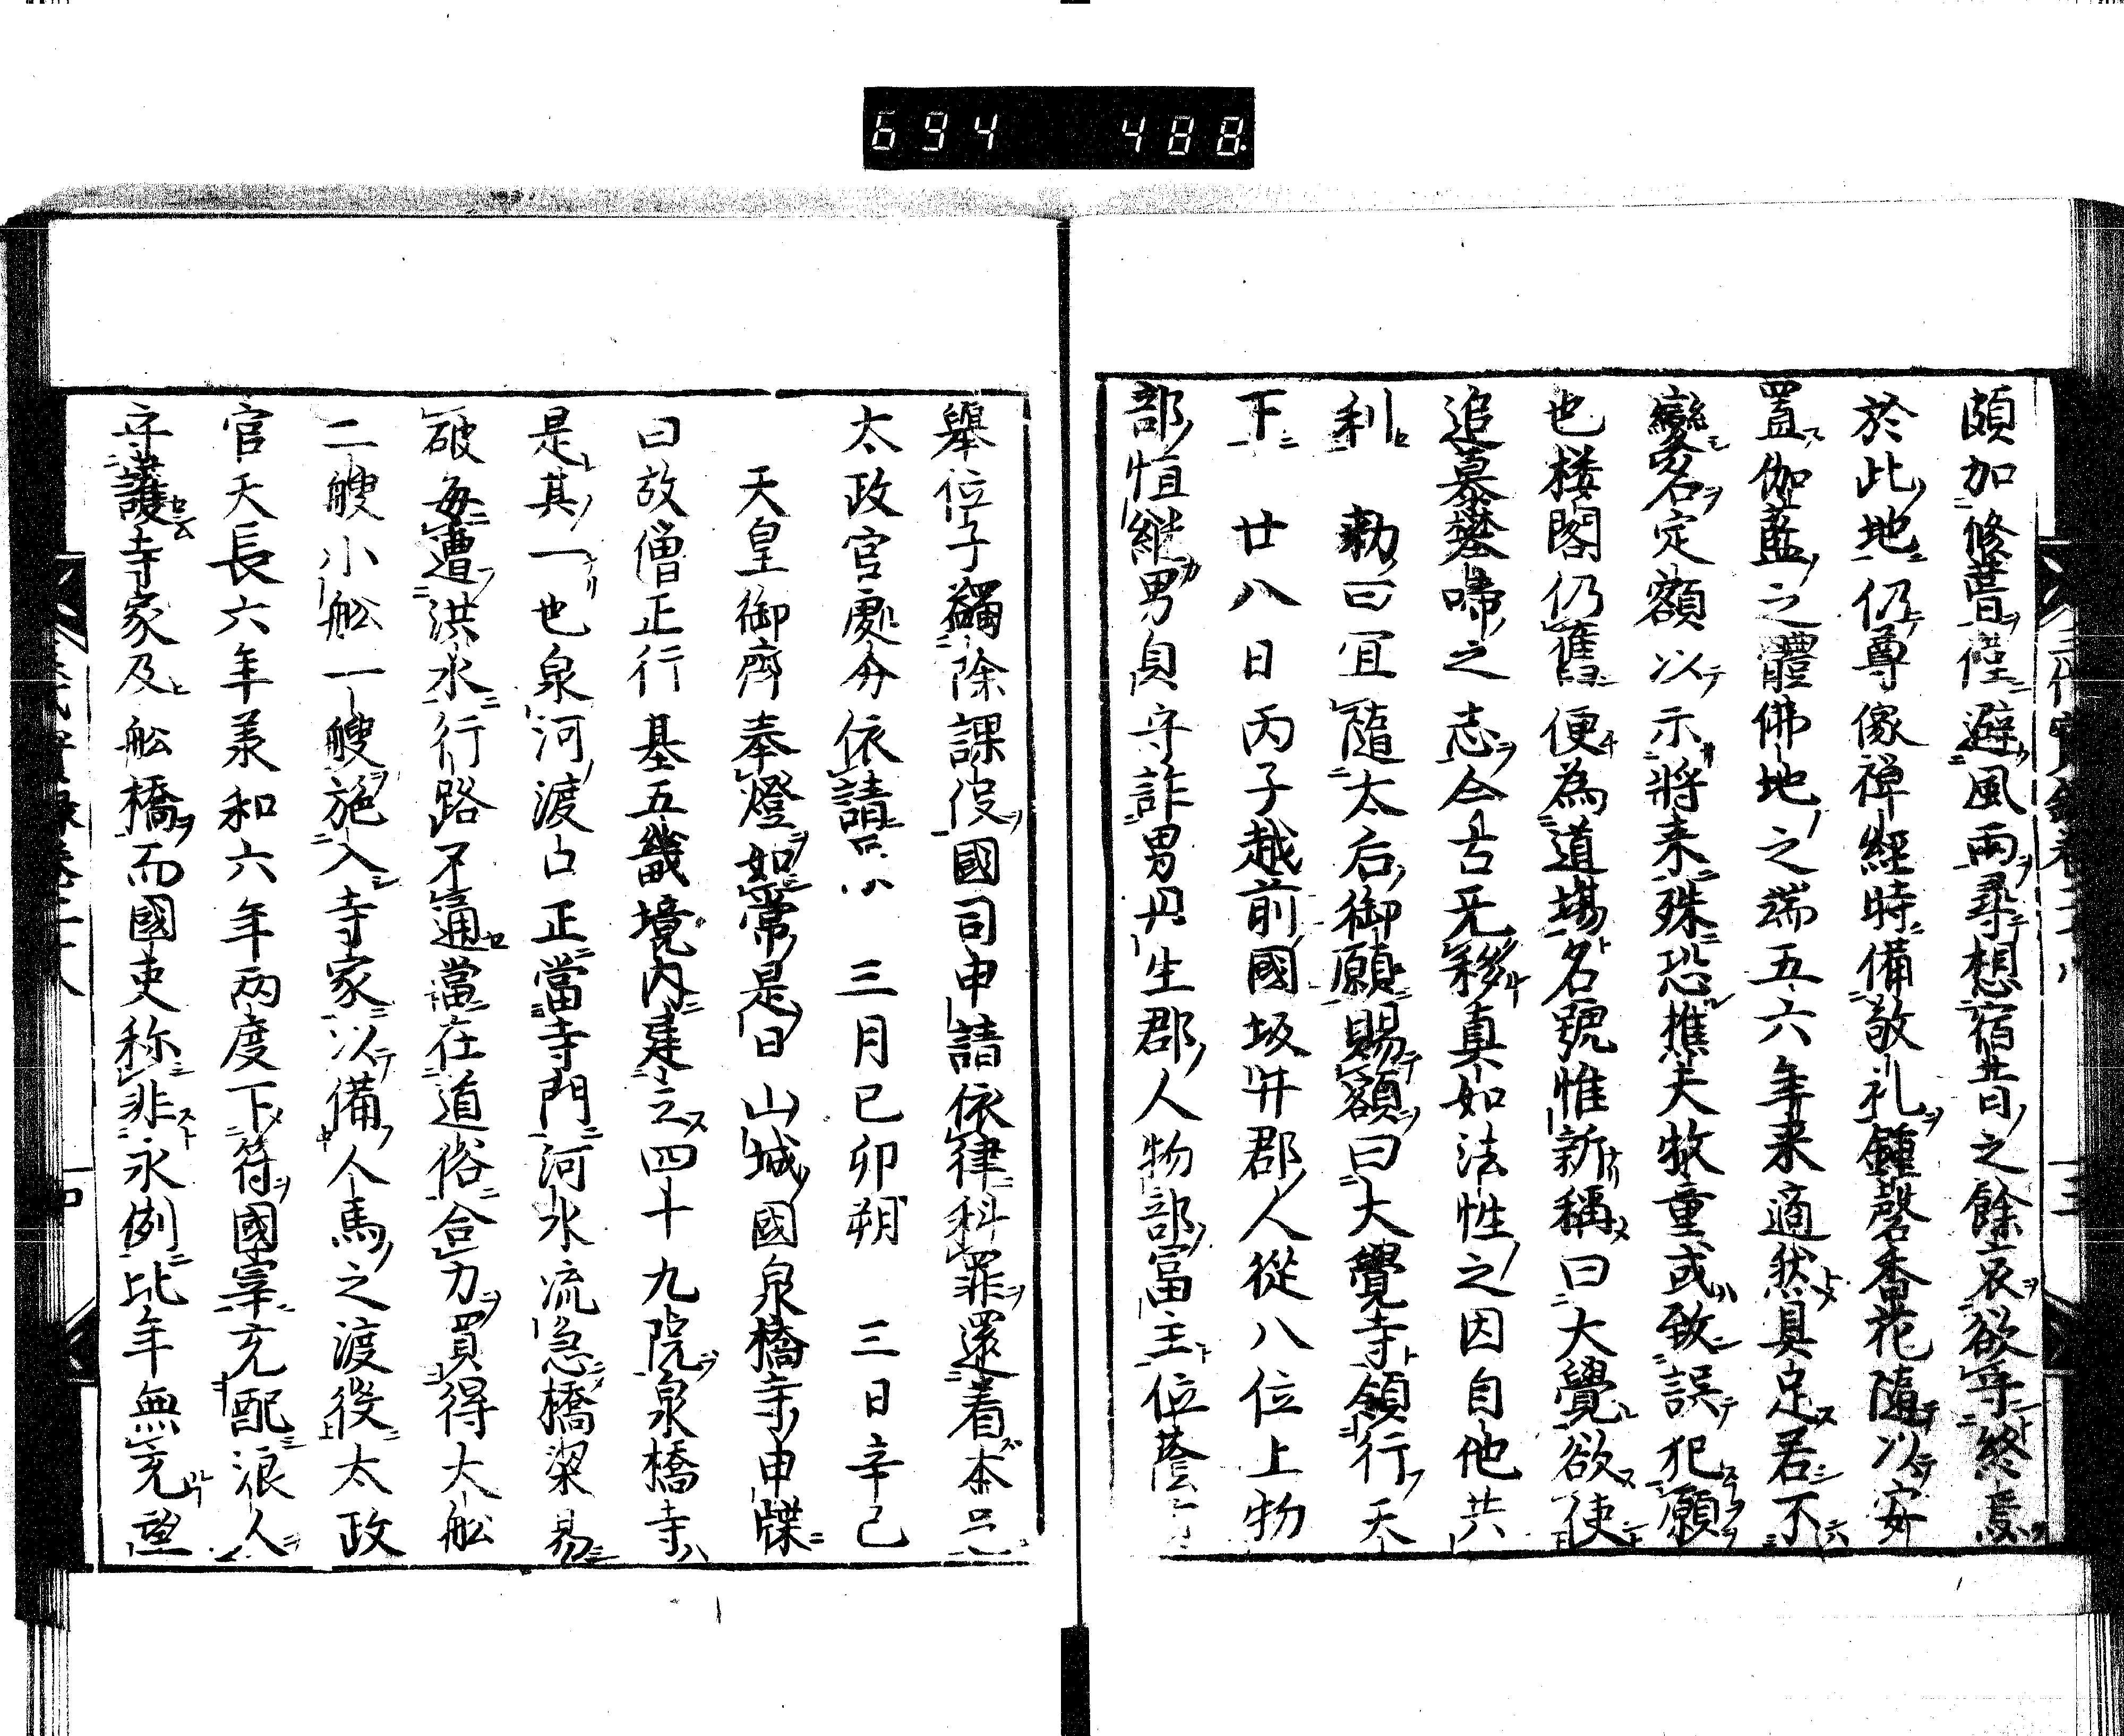 694 488
頗加修葺僅避風雨尋想宿昔之餘哀欲乎終焉
於此地仍尊像禅經時備敬礼鍾磬香花隨以安
置伽藍之體佛地之端五六年来適然具足若不
變名定額以示將来殊恐樵夫牧童或致誤犯願
也楼閣仍舊便為道場名號惟新稱曰大覺欲使
追慕攀啼之志今古无移真如法性之因自他共
利 勅曰宜隨太后御願賜額曰大覺寺領行天
下 廿八日丙子越前國坂井郡人從八位上物
部恒継男貞守詐男丹生郡人物部冨主位蔭
舉位子蠲除課役國司申請依律科罪還着本
太政官處分依請 三月己卯朔 三日辛巳
天皇御齊奉燈如常是日山城國泉橋寺申牒
曰故僧正行基五畿境内建立四十九院泉橋寺
是其一也泉河渡口正當寺門河水流急橋梁易
破每遭洪水行路不通當在道俗合力買得大舩
二艘小舩一艘施入寺家以備人馬之渡後太政
官天長六年羕和六年兩度下符國宰充配浪人
守護寺家及舩橋而國吏称非永例比年無充望